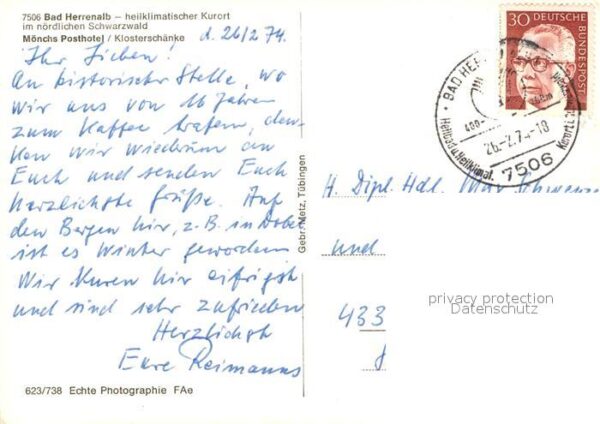 7506 Bad Herrenalb – heilklimatischer Kurort
im nördlichen Schwarzwald
Mönchs Posthotel / Klosterschänke
d. 26/2 74.
Ihr Lieben!
An historischer Stelle, wo
wir uns vor 16 Jahren
zum Kaffee trafen, den-
ken wir wiedrum an
Euch und senden Euch
herzlichste Grüße. Auf
den Bergen hier, z. B. in Dobel
ist es Winter geworden
Wir kuren hier eifrigst
und sind sehr zufrieden
Herzlichst
Eure Reimanns
623/738 Echte Photographie FAe
Gebr. Metz, Tübingen
30 DEUTSCHE
BUNDESPOST
BAD HER
400-
26.-2.74-18
Heilbad u. Heilklimat. Kurort
7506
H. Dipl. Hdl.
und
433
privacy protection
Datenschutz